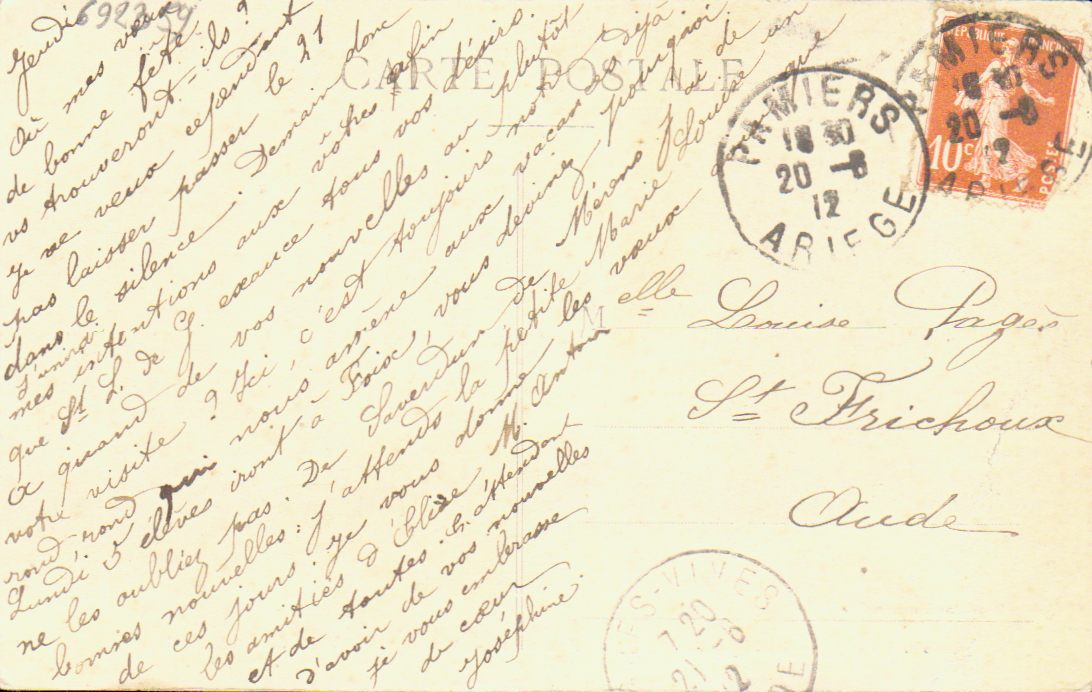 692329
Jeudi
Où mes vœux
de bonne fête
vs trouveront-ils ?
Je ne veux cependant
pas laisser passer le 21
dans le silence. Demain donc
J'unirai
mes intentions aux vôtres afin
que St L. de G. exauce tous vos désirs.
A quand de vos nouvelles ou plutôt
votre visite ? Ici, c'est toujours non
rond rond qui nous amène aux vacances Déjà
Lundi 5 élèves iront à Foix, vous devinez pourquoi
ne les oubliez pas. De Saverdun de Mérens j'ai de
bonnes nouvelles. J'attends la petite Marie Louise un
de ces jours. Je vous donne les vœux que
les amitiés d'Elise M. Antoin
et de toutes. En attendant
d'avoir de vos nouvelles
je vous embrasse
de cœur
Joséphine.
CARTE POSTALE
REPUBLIQUE FRANÇAISE
10c
POSTES
PAMIERS
18 30
20 -8
12
ARIEGE
PAMIERS
18 30
20 -8
12
ARIEGE
Melle Louise Pagès
St Frichoux
Aude
ES-VIVES
7 20
21 -8
12
DE